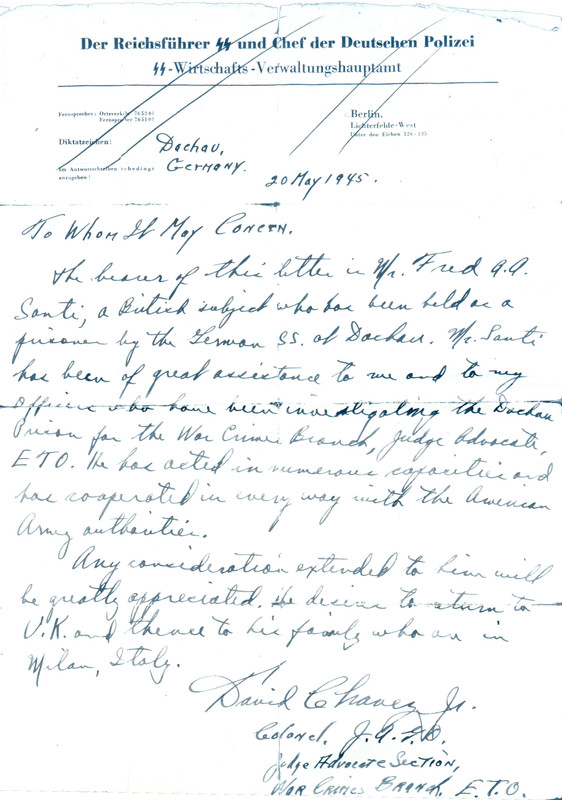 Der Reichsführer SS und Chef der Deutschen Polizei
SS-Wirtschafts-Verwaltungshauptamt
Fernsprecher: Ortsverkehr 765261
Fernverkehr 765101
Berlin,
Lichterfelde-West
Unter den Eichen 126-135
Diktatzeichen:
Im Antwortschreiben unbedingt
angeben!
Dachau,
Germany.
20 May 1945.
To Whom It May Concern.
The bearer of this letter is Mr. Fred A.A.
Santi, a British subject who has been held as a
prisoner by the German SS. at Dachau. Mr. Santi
has been of great assistance to me and to my
officers who have been investigating the Dachau
Prison for the War Crimes Branch, Judge Advocate,
ETO. He has acted in numerous capacities and
has cooperated in every way with the American
Army authorities.
Any consideration extended to him will
be greatly appreciated. He desires to return to
U.K. and thence to his family who are in
Milan, Italy.
David Chavez Jr.
Colonel, J.A.G.D.
Judge Advocate Section,
War Crimes Branch, E.T.O.